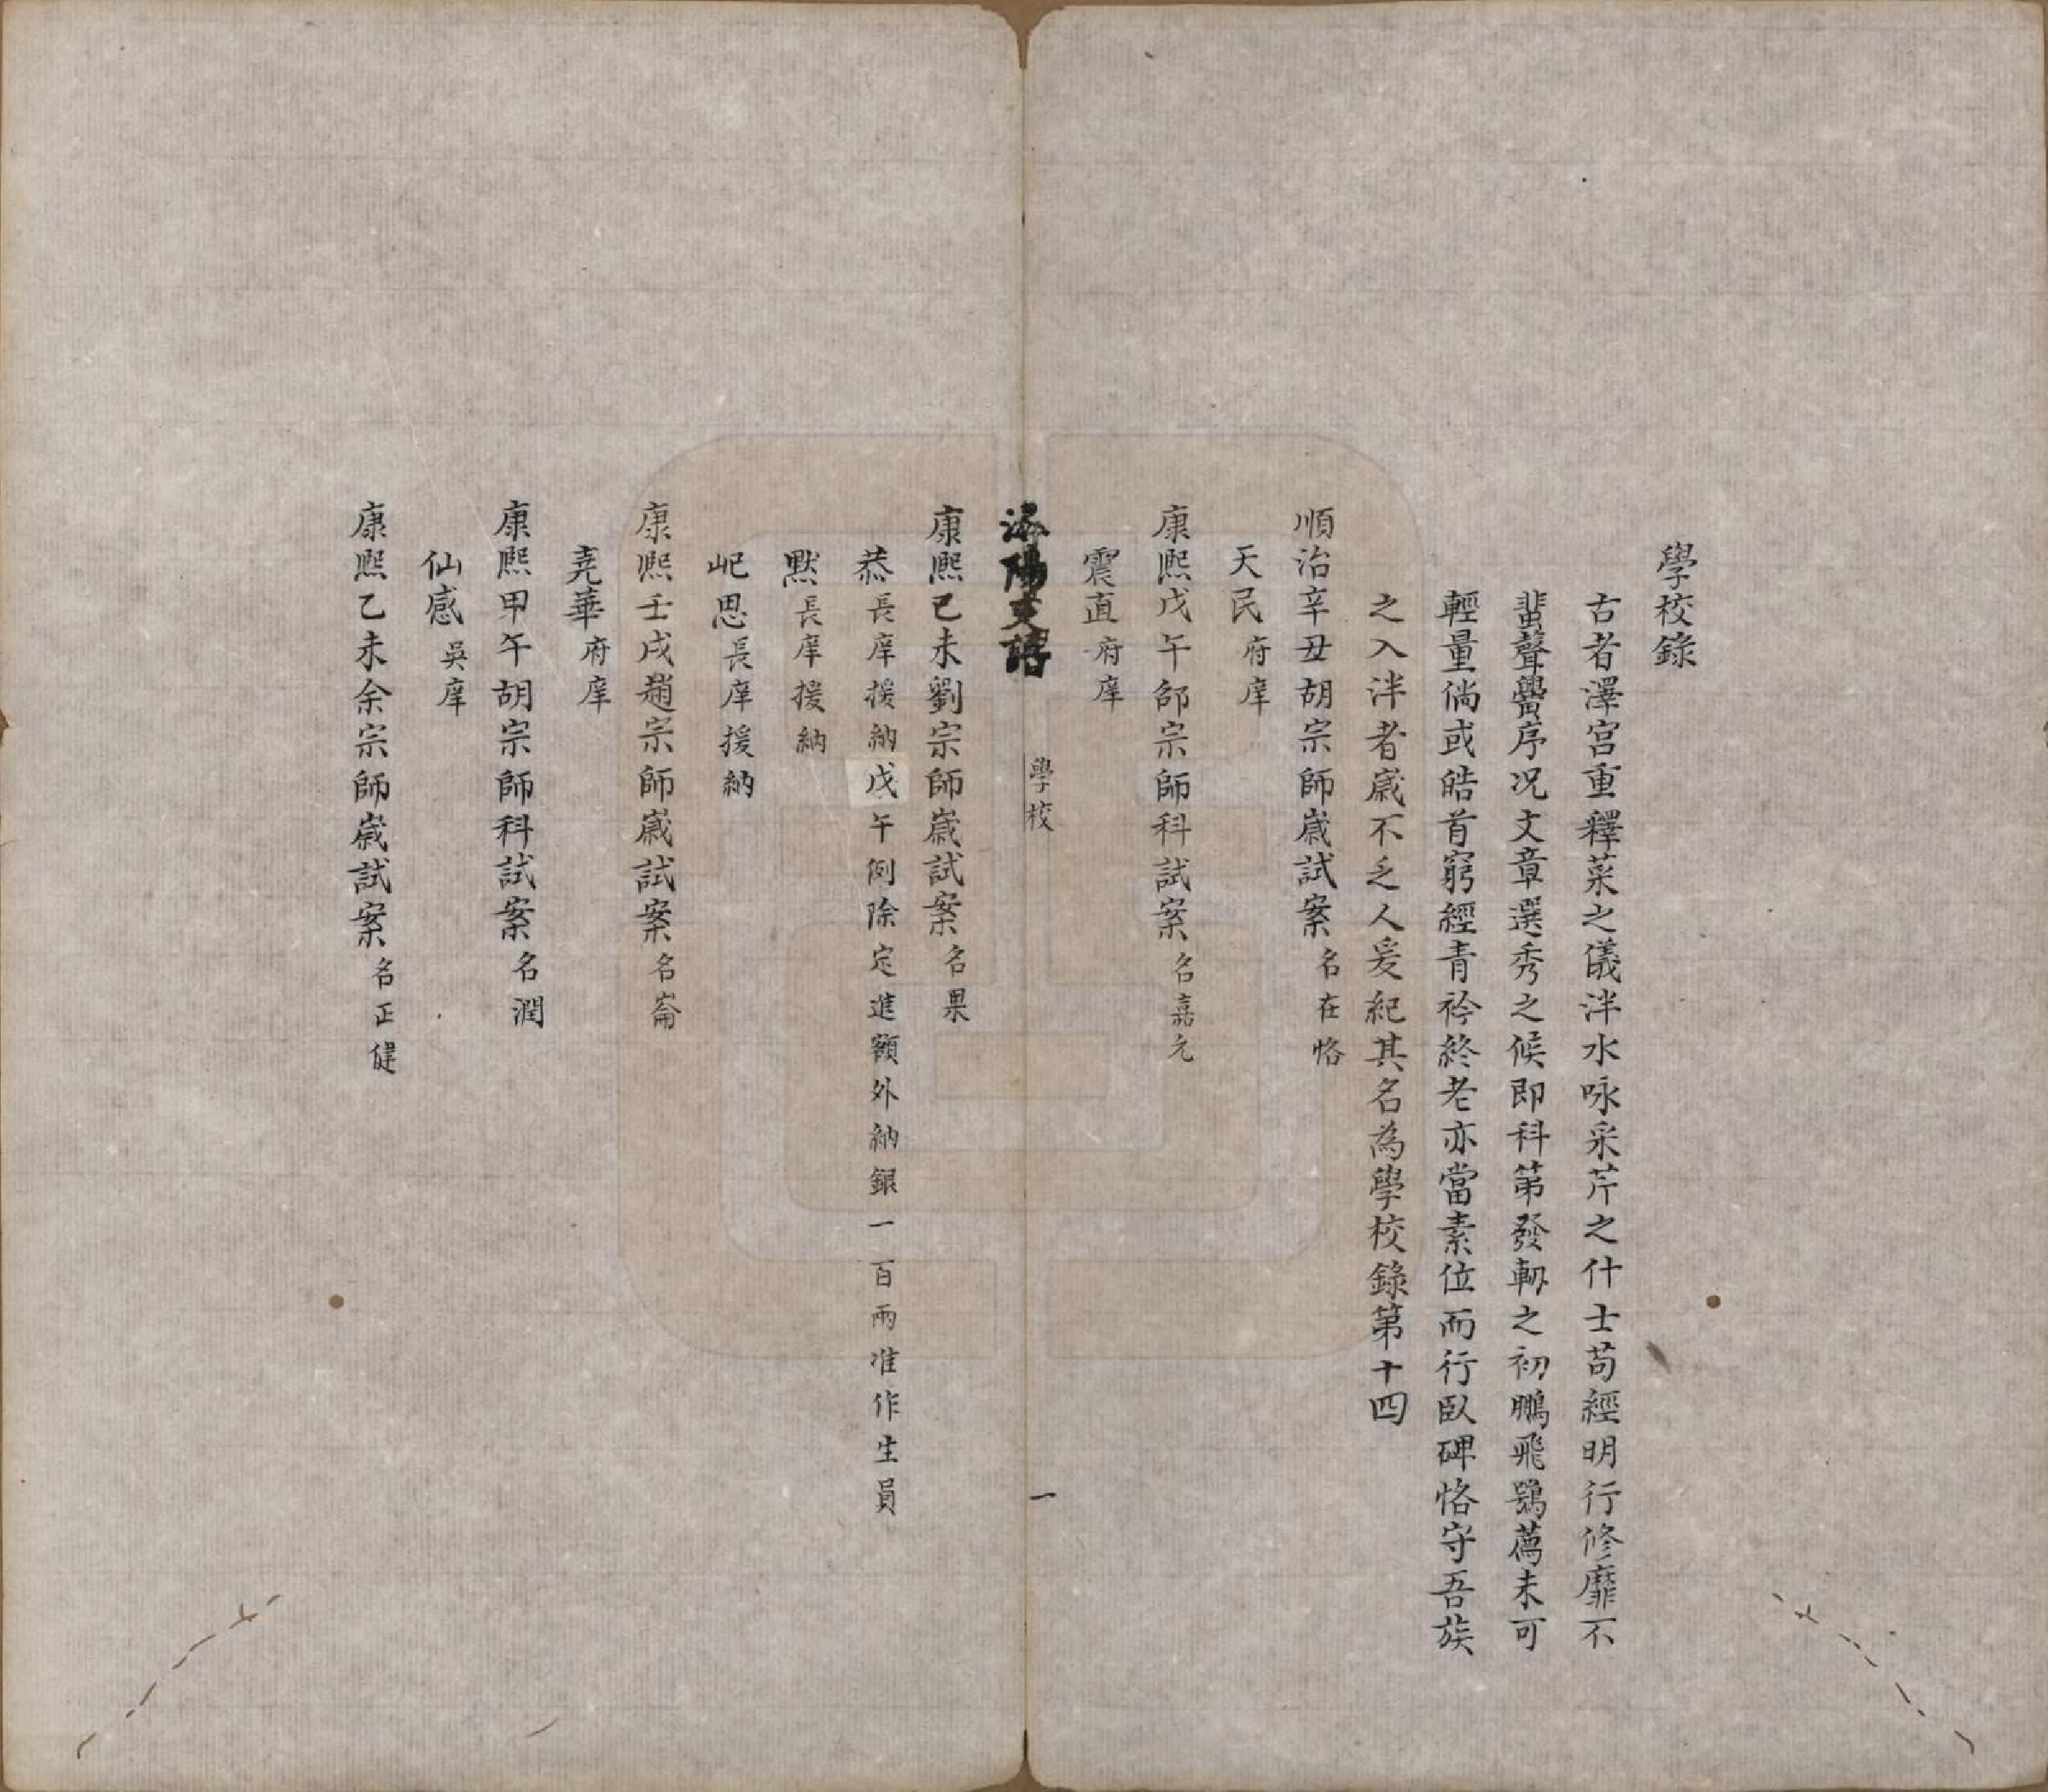 學校錄
古者澤宮重釋菜之儀泮水咏采芹之什士苟經明行修靡不
蜚聲黌序况文章選秀之候即科第發軔之初鵬飛鶚薦未可
輕量倘或皓首窮經青衿終老亦當素位而行臥碑恪守吾族
之入泮者嵗不乏人爰紀其名為學校錄第十四
順治辛丑胡宗師嵗試案名在恪
天民府庠
康熙戊午邵宗師科試案名嘉元
震直府庠
洛陽支譜 學校 一
康熙己未劉宗師嵗試案名果
恭長庠援納戊午例除定進額外納銀一百兩准作生員
默長庠援納
屺思長庠援納
康熙壬戌趙宗師嵗試案名崙
堯華府庠
康熙甲午胡宗師科試案名潤
仙感吳庠
康熙乙未余宗師嵗試案名正健